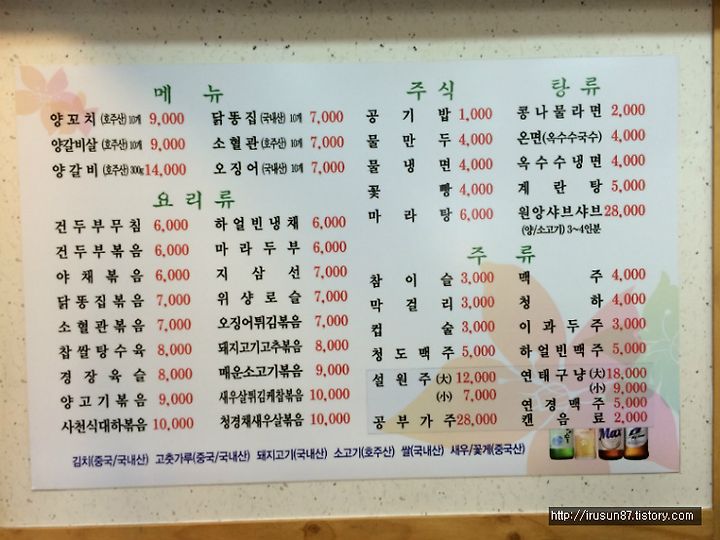 메 뉴
양꼬치 (호주산) 10개 9,000
양갈비살 (호주산) 10개 9,000
양갈비 (호주산) 300g 14,000
닭똥집 (국내산) 10개 7,000
소혈관 (호주산) 10개 7,000
오징어 (국내산) 10개 7,000
요리류
건두부무침 6,000
건두부볶음 6,000
야채볶음 6,000
닭똥집볶음 7,000
소혈관볶음 7,000
찹쌀탕수육 8,000
경장육슬 8,000
양고기볶음 9,000
사천식대하볶음 10,000
하얼빈냉채 6,000
마라두부 6,000
지삼선 7,000
위샹로슬 7,000
오징어튀김볶음 7,000
돼지고기고추볶음 8,000
매운소고기볶음 9,000
새우살튀김케찹볶음 10,000
청경채새우살볶음 10,000
주식
공기밥 1,000
물만두 4,000
물냉면 4,000
꽃빵 4,000
마라탕 6,000
탕류
콩나물라면 2,000
온면(옥수수국수) 4,000
옥수수냉면 4,000
계란탕 5,000
원앙샤브샤브 28,000
(양/소고기) 3~4인분
주류
참이슬 3,000
막걸리 3,000
컵술 3,000
청도맥주 5,000
설원주 (大) 12,000
(小) 7,000
공부가주 28,000
맥주 4,000
청하 4,000
이과두주 3,000
하얼빈맥주 5,000
연태구냥 (大) 18,000
(小) 9,000
연경맥주 5,000
캔음료 2,000
Max
김치(중국/국내산) 고춧가루(중국/국내산) 돼지고기(국내산) 소고기(호주산) 쌀(국내산) 새우/꽃게(중국산)
http://irusun87.tistory.com